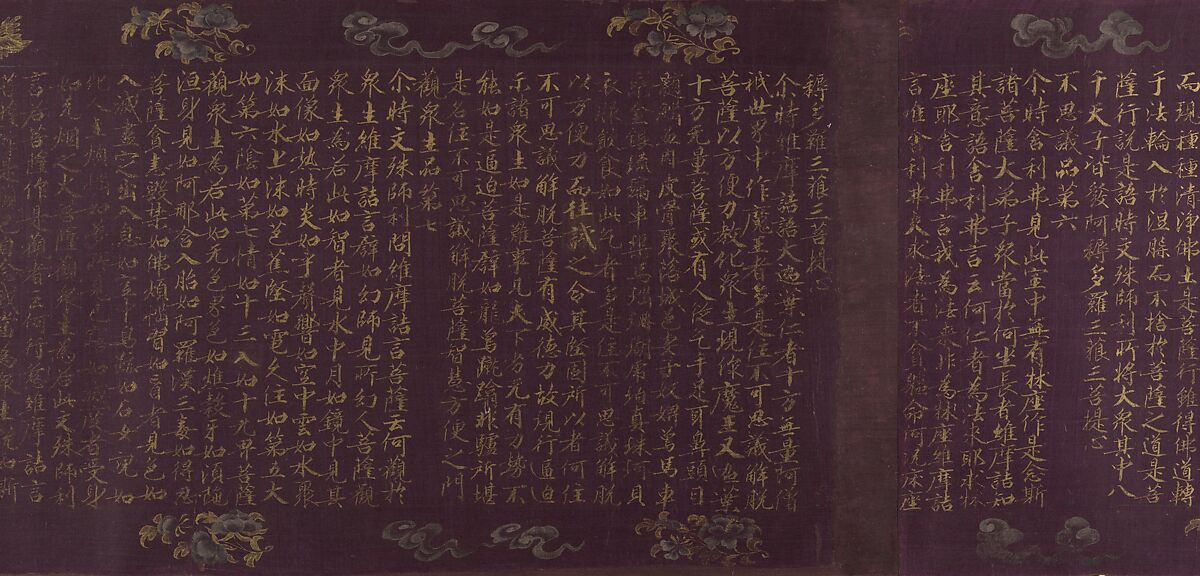 而現種種清淨佛土是菩薩行雖得佛道轉
于法輪入於涅槃而不捨於菩薩之道是菩
薩行說是語時文殊師利所將大眾其中八
千天子皆發阿耨多羅三藐三菩提心
不思議品第六
尒時舍利弗見此室中無有床座作是念斯
諸菩薩大弟子眾當於何坐長者維摩詰知
其意語舍利弗言云何仁者為法來耶求床
座耶舍利弗言我為法來非為床座維摩詰
言唯舍利弗夫求法者不貪軀命何況床座
耨多羅三藐三菩提心
尒時維摩詰語大迦葉仁者十方無量阿僧
祇世界中作魔王者多是住不可思議解脫
菩薩以方便力教化眾生現作魔王又迦葉
十方無量菩薩或有人從乞手足耳鼻頭目
髓腦血肉皮骨聚落城邑妻子奴婢象馬車
乘金銀琉璃車璩馬瑙珊瑚琥珀真珠珂貝
衣服飲食如此乞者多是住不可思議解脫
以方便力而往試之令其堅固所以者何住
不可思議解脫菩薩有威德力故現行逼迫
示諸眾生如是難事凡夫下劣无有力勢不
能如是逼迫菩薩譬如龍象蹴踏非驢所堪
是名住不可思議解脫菩薩智慧方便之門
觀眾生品第七
尒時文殊師利問維摩詰言菩薩云何觀於
眾生維摩詰言譬如幻師見所幻人菩薩觀
眾生為若此如智者見水中月如鏡中見其
面像如熱時炎如呼聲響如空中雲如水聚
沫如水上泡如芭蕉堅如電久住如第五大
如第六陰如第七情如十三入如十九界菩薩
觀眾生為若此如无色界色如燋穀牙如須陀
洹身見如阿那含入胎如阿羅漢三毒如得忍
菩薩貪恚毀禁如佛煩惱習如盲者見色如
入滅盡定出入息如空中鳥跡如石女兒如
化人生煩惱如夢所見已寤如滅度者受身
如无烟之火菩薩觀眾生為若此文殊師利
言若菩薩作是觀者云何行慈維摩詰言